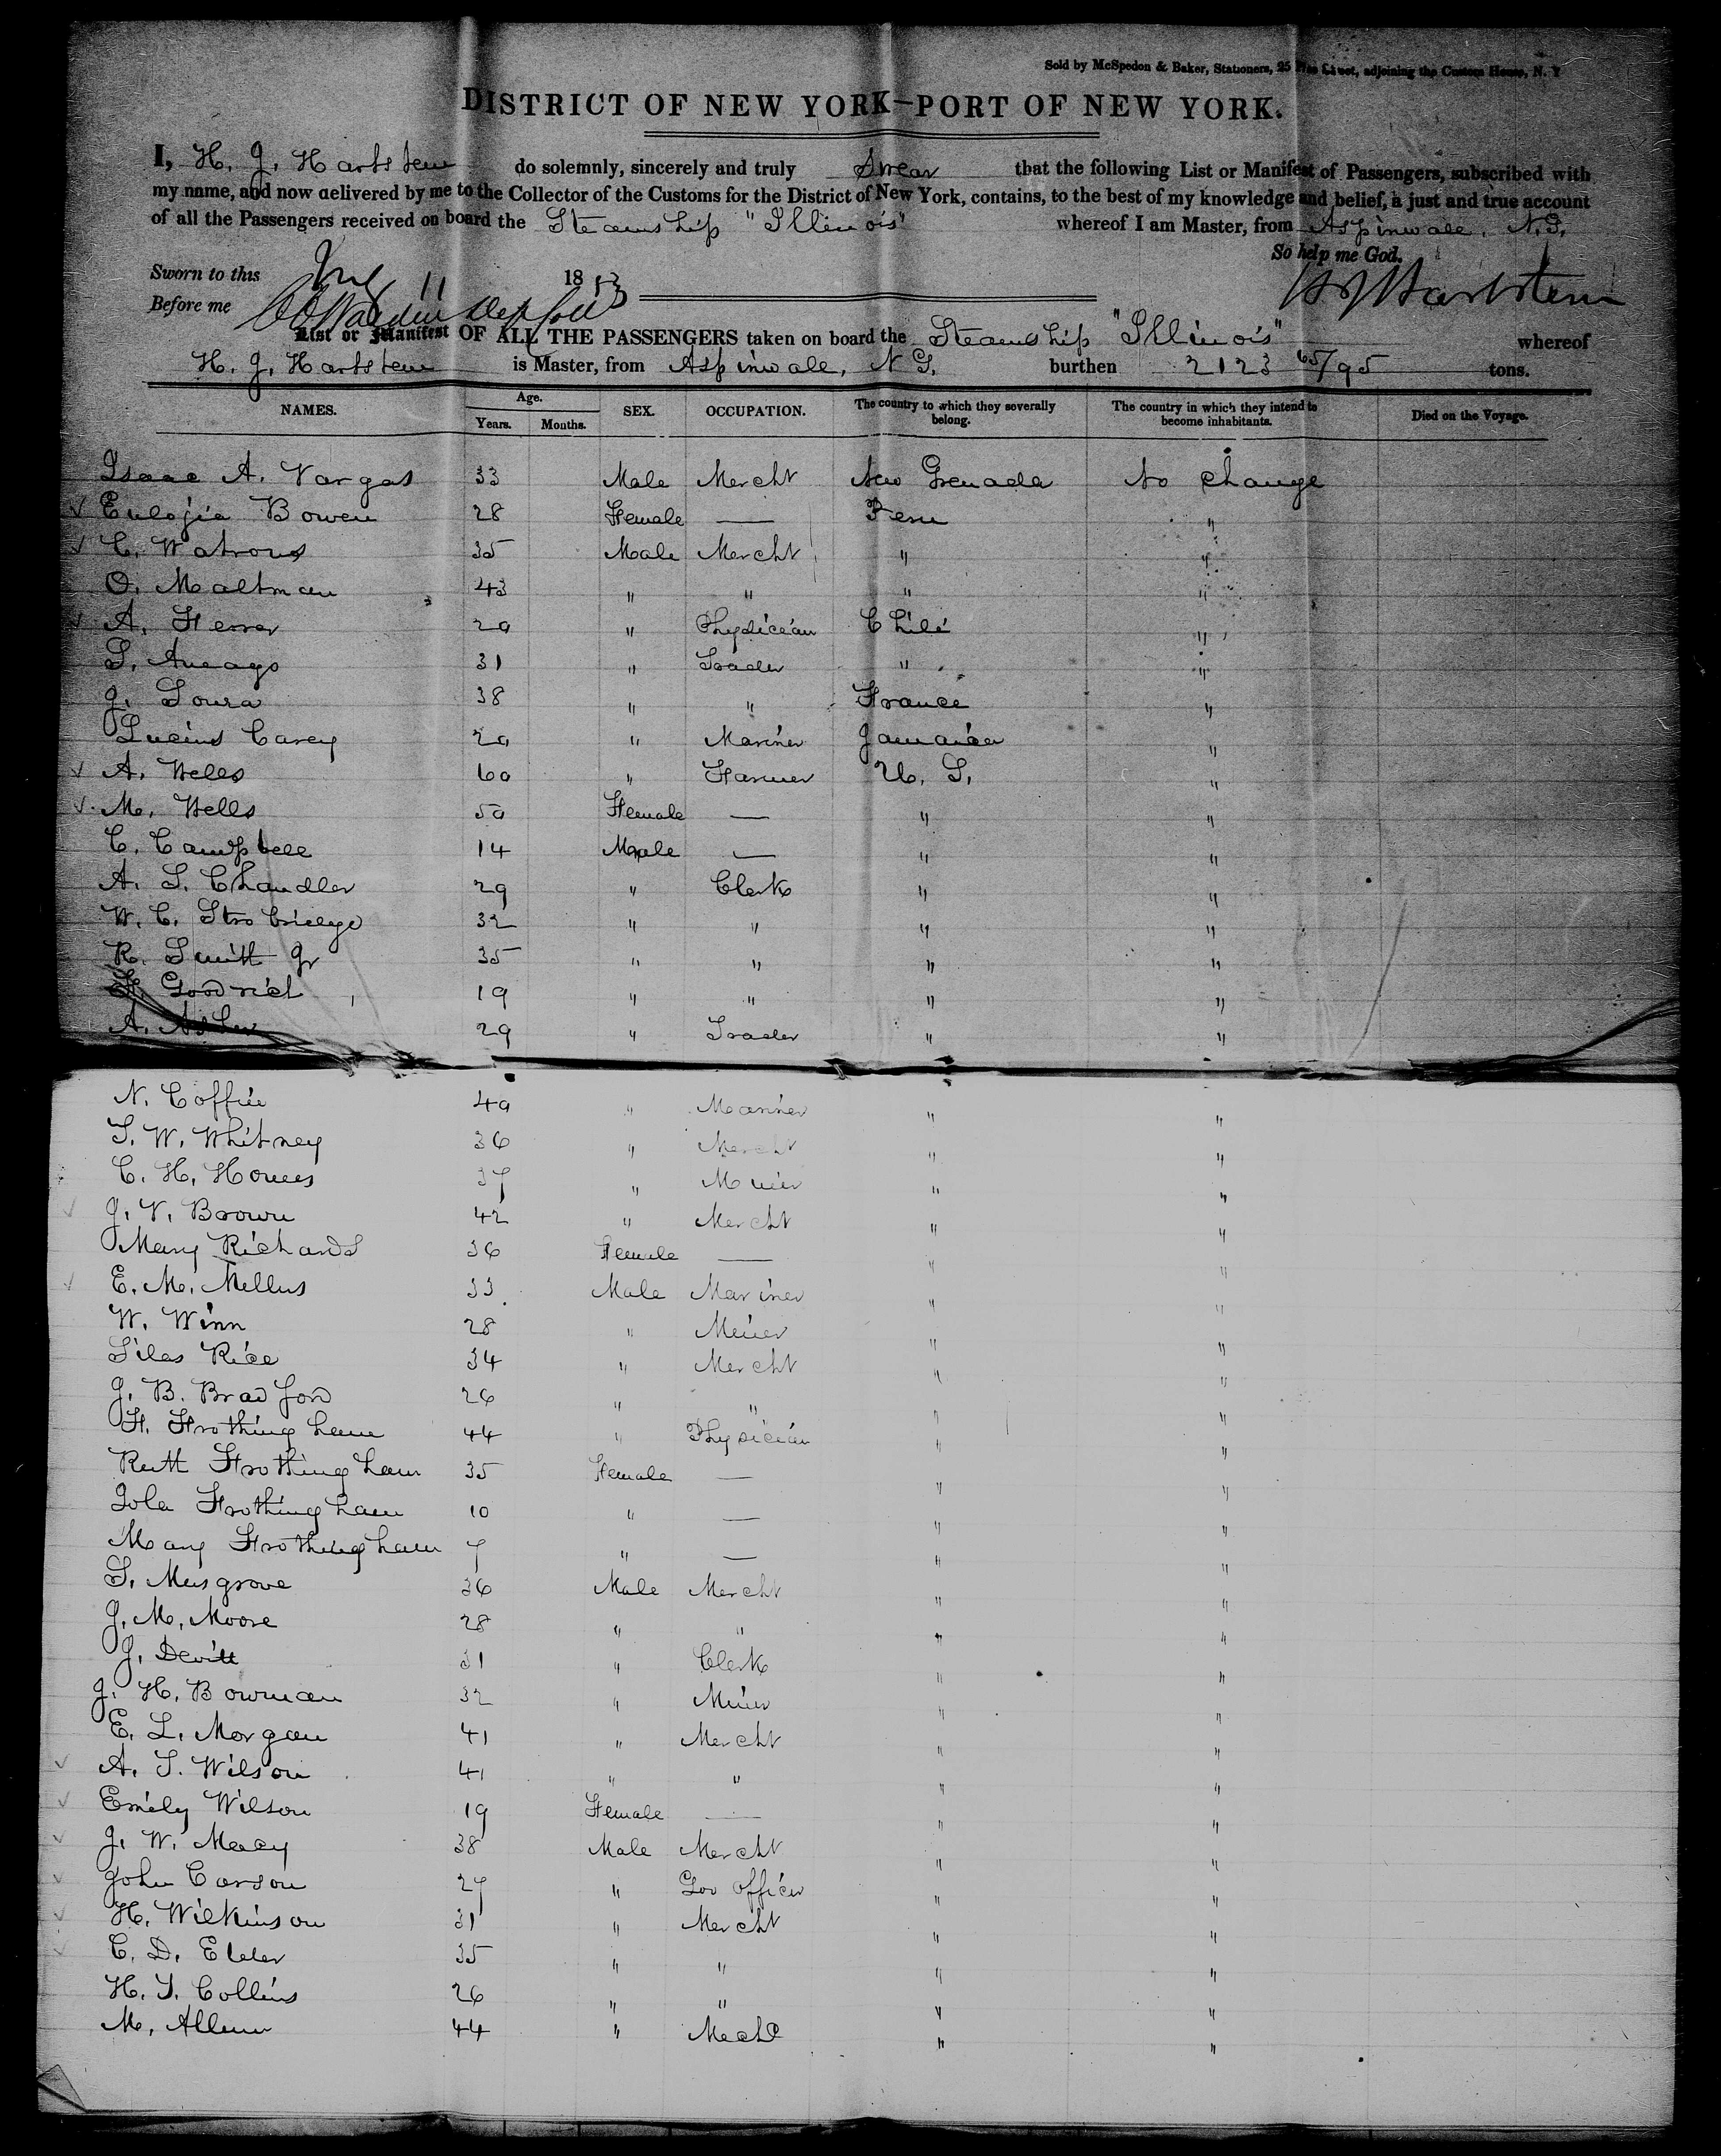 Sold by McSpedon & Baker, Stationers, 25 Pine Street, adjoining the Custom House, N. Y
DISTRICT OF NEW YORK—PORT OF NEW YORK.
I, H. J. Hartstene do solemnly, sincerely and truly Swear that the following List or Manifest of Passengers, subscribed with
my name, and now delivered by me to the Collector of the Customs for the District of New York, contains, to the best of my knowledge and belief, a just and true account
of all the Passengers received on board the Steamship "Illinois" whereof I am Master, from Aspinwall, N.G.
So help me God.
Sworn to this 11 1853
Before me H J Hartstene
List or Manifest OF ALL THE PASSENGERS taken on board the Steamship "Illinois" whereof
H. J. Hartstene is Master, from Aspinwall, N G. burthen 2123 65/95 tons.
NAMES. Age. Years. Months. SEX. OCCUPATION. The country to which they severally belong. The country in which they intend to become inhabitants. Died on the Voyage.
Isaac A. Vargas 33 Male Mercht New Grenada No change
Eulojia Bowen 28 Female — Peru "
C. Watrous 35 Male Mercht " "
O. Maltman 43 " " " "
A. Ferrer 20 " Physician Chili "
S. Aneago 31 " Trader " "
J. Loura 38 " " France "
Lucius Carey 20 " Mariner Jamaica "
A. Wells 60 " Farmer U. S. "
M. Wells 50 Female — " "
C. Campbell 14 Male — " "
A. S. Chandler 29 " Clerk " "
W. C. Strobridge 32 " " " "
R. Smith Jr 35 " " " "
F. Goodrich 19 " " " "
A. 29 " Trader " "
N. Coffin 40 " Mariner " "
S. W. Whitney 36 " Mercht " "
C. H. Howes 37 " Miner " "
J. V. Brown 42 " Mercht " "
Mary Richards 36 Female — " "
E. M. Mellus 33 Male Mariner " "
W. Winn 28 " Miner " "
Silas Rice 34 " Mercht " "
J. B. Bradford 26 " " " "
F. Frothingham 44 " Physician " "
Ruth Frothingham 35 Female — " "
Iola Frothingham 10 " — " "
Mary Frothingham 7 " — " "
S. Musgrove 36 Male Mercht " "
J. M. Moore 28 " " " "
J. Devitt 31 " Clerk " "
J. H. Bowman 32 " Miner " "
E. L. Morgan 41 " Mercht " "
A. S. Wilson 41 " " " "
Emily Wilson 19 Female — " "
J. W. Macy 38 Male Mercht " "
John Carson 27 " Gov officer " "
H. Wilkinson 31 " Mercht " "
C. D. Elder 35 " " " "
H. S. Collins 26 " " " "
M. Allenn 44 " Mechc " "